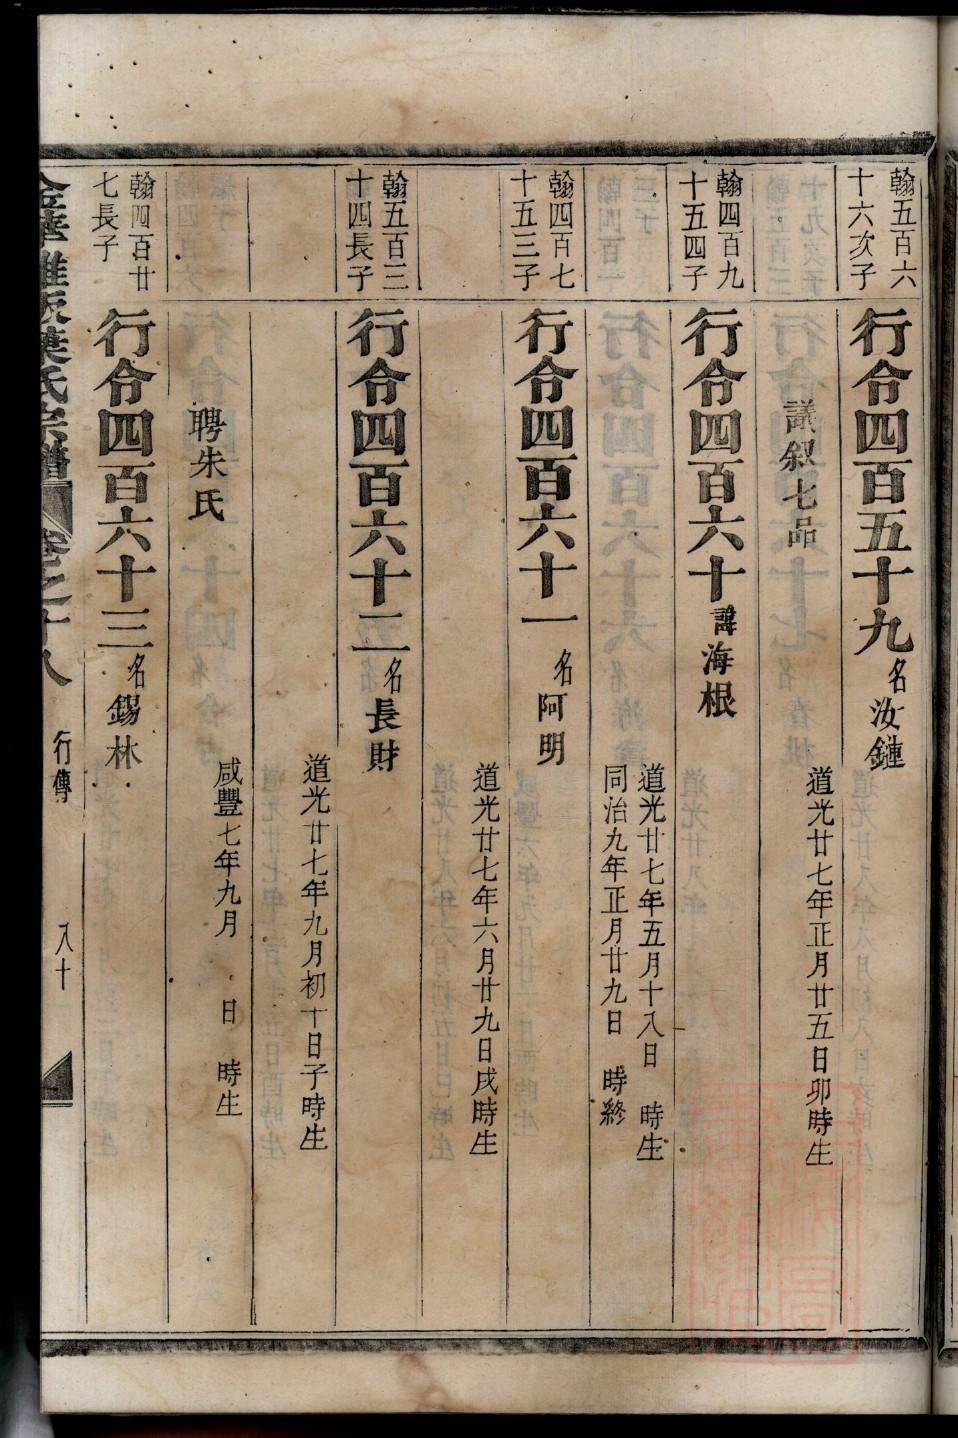 翰五百六
十六次子
行令四百五十九名汝鏈
道光廿七年正月廿五日卯時生
議叙七品
翰四百九
十五四子
行令四百六十諱海根
道光廿七年五月十八日 時生
同治九年正月廿九日 時終
翰四百七
十五三子
行令四百六十一名阿明
道光廿七年六月廿九日戌時生
翰五百三
十四長子
行令四百六十二名長財
道光廿七年九月初十日子時生
聘朱氏
咸豐七年九月 日 時生
翰四百廿
七長子
行令四百六十三名錫林
葉氏宗譜 卷之十八 行傳 八十